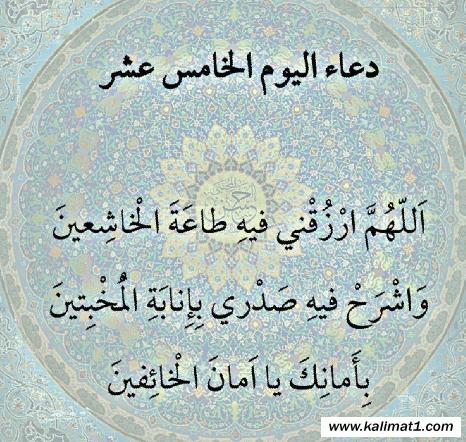 دعاء اليوم الخامس عشر
اَللّهُمَّ ارْزُقْني فيهِ طاعَةَ الْخاشِعينَ
وَاشْرَحْ فيهِ صَدْري بِاِنابَةِ الْمُخْبِتينَ
بِأَمانِكَ يا اَمانَ الْخائِفينَ
www.kalimat1.com